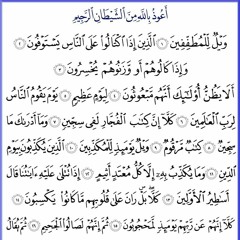 أعوذ بالله من الشيطان الرجيم
وَيْلٌ لِّلْمُطَفِّفِينَ ١ الَّذِينَ إِذَا اكْتَالُوا عَلَى النَّاسِ يَسْتَوْفُونَ ٢
وَإِذَا كَالُوهُمْ أَو وَّزَنُوهُمْ يُخْسِرُونَ ٣
أَلَا يَظُنُّ أُولَٰئِكَ أَنَّهُم مَّبْعُوثُونَ ٤ لِيَوْمٍ عَظِيمٍ ٥ يَوْمَ يَقُومُ النَّاسُ
لِرَبِّ الْعَالَمِينَ ٦ كَلَّا إِنَّ كِتَابَ الْفُجَّارِ لَفِي سِجِّينٍ ٧ وَمَا أَدْرَاكَ مَا
سِجِّينٌ ٨ كِتَابٌ مَّرْقُومٌ ٩ وَيْلٌ يَوْمَئِذٍ لِّلْمُكَذِّبِينَ ١٠ الَّذِينَ يُكَذِّبُونَ بِيَوْمِ
الدِّينِ ١١ وَمَا يُكَذِّبُ بِهِ إِلَّا كُلُّ مُعْتَدٍ أَثِيمٍ ١٢ إِذَا تُتْلَىٰ عَلَيْهِ آيَاتُنَا قَالَ
أَسَاطِيرُ الْأَوَّلِينَ ١٣ كَلَّا بَلْ رَانَ عَلَىٰ قُلُوبِهِم مَّا كَانُوا يَكْسِبُونَ ١٤
كَلَّا إِنَّهُمْ عَن رَّبِّهِمْ يَوْمَئِذٍ لَّمَحْجُوبُونَ ١٥ ثُمَّ إِنَّهُمْ لَصَالُو الْجَحِيمِ ١٦ ثُمَّ يُقَالُ